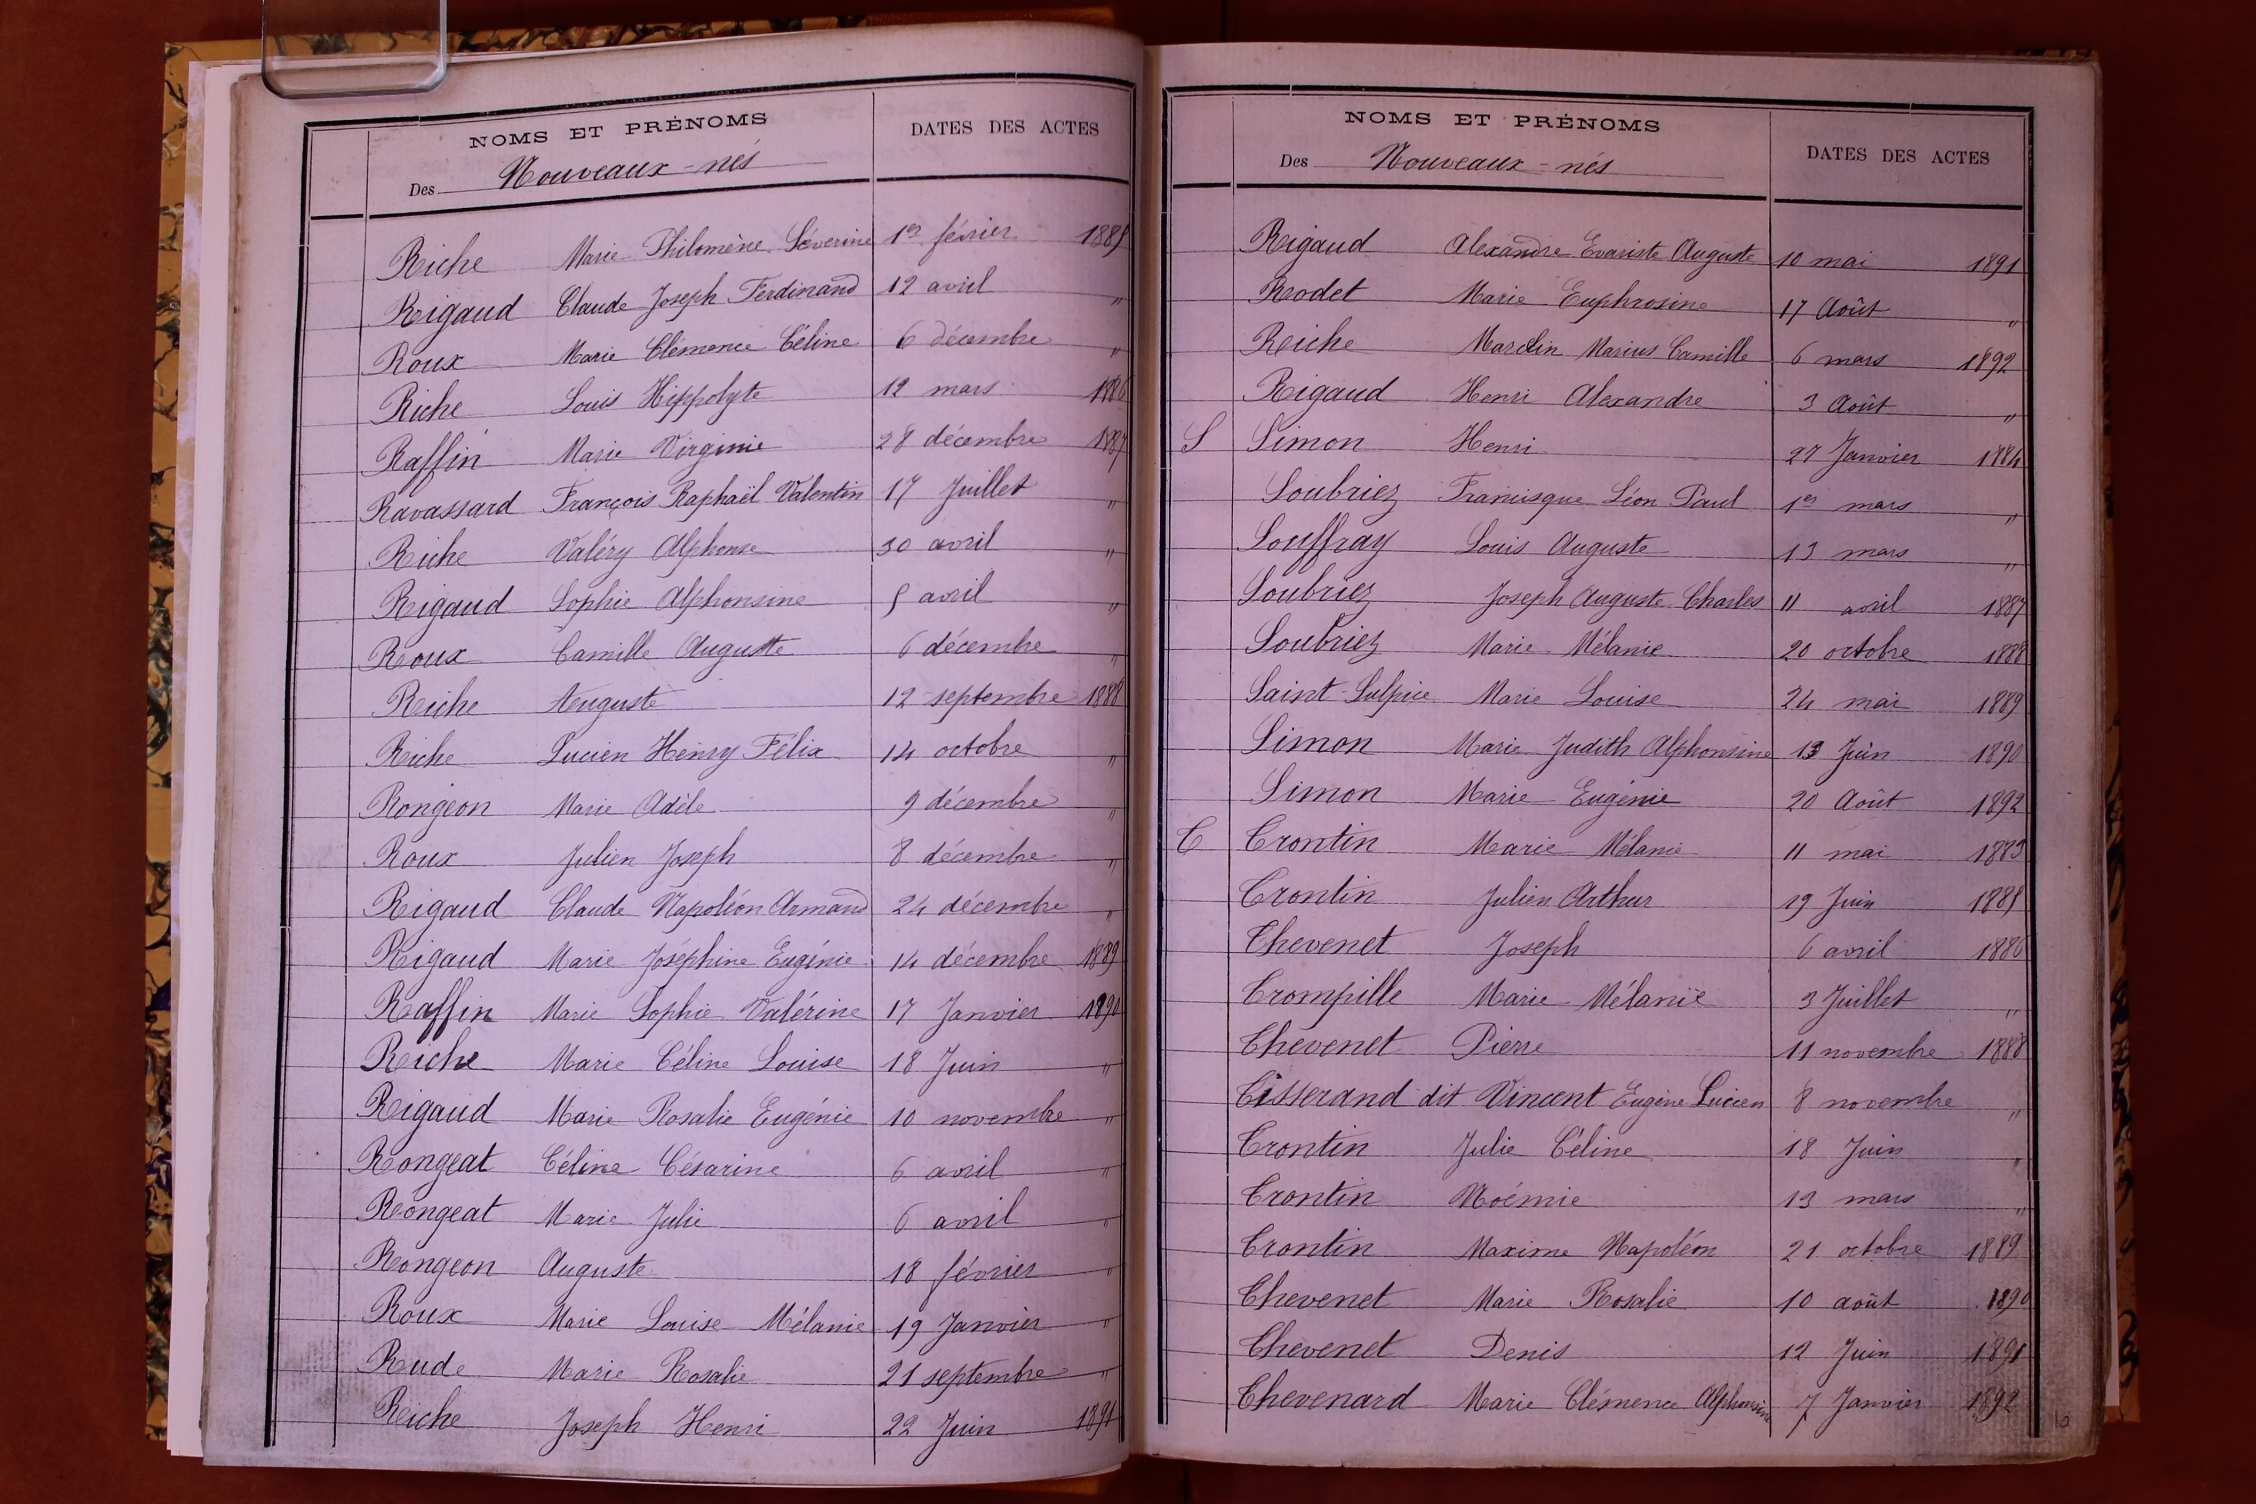 NOMS ET PRÉNOMS DATES DES ACTES
Des Nouveaux-nés
Riche Marie Philomène Séverine 1er février 1885
Rigaud Claude Joseph Ferdinand 12 avril "
Roux Marie Clémence Céline 6 décembre "
Riche Louis Hippolyte 12 mars 1886
Raffin Marie Virginie 28 décembre 1887
Ravassard François Raphaël Valentin 17 Juillet "
Riche Valéry Alphonse 30 avril "
Rigaud Sophie Alphonsine 5 avril "
Roux Camille Auguste 6 décembre "
Riche Auguste 12 septembre 1888
Riche Lucien Henry Félix 14 octobre "
Rongeon Marie Adèle 9 décembre "
Roux Julien Joseph 8 décembre "
Rigaud Claude Napoléon Armand 24 décembre "
Rigaud Marie Joséphine Eugénie 14 décembre 1889
Raffin Marie Sophie Valérine 17 Janvier 1890
Riche Marie Céline Louise 18 Juin "
Rigaud Marie Rosalie Eugénie 10 novembre "
Rongeat Céline Césarine 6 avril "
Rongeat Marie Julie 6 avril "
Rongeon Auguste 18 février "
Roux Marie Louise Mélanie 19 Janvier "
Rude Marie Rosalie 21 septembre "
Riche Joseph Henri 22 Juin 1891
NOMS ET PRÉNOMS DATES DES ACTES
Des Nouveaux-nés
Rigaud Alexandre Evariste Auguste 10 mai 1891
Rodet Marie Euphrosine 17 Août "
Riche Marcelin Marius Camille 6 mars 1892
Rigaud Henri Alexandre 3 Août "
S Simon Henri 27 Janvier 1884
Soubriez Francisque Léon Paul 1er mars "
Souffray Louis Auguste 13 mars "
Soubriez Joseph Auguste Charles 11 avril 1887
Soubriez Marie Mélanie 20 octobre 1888
Saint-Sulpice Marie Louise 24 mai 1889
Simon Marie Judith Alphonsine 13 Juin 1890
Simon Marie Eugénie 20 Août 1892
T Trontin Marie Mélanie 11 mai 1883
Trontin Julien Arthur 19 Juin 1885
Thevenet Joseph 6 avril 1886
Trompille Marie Mélanie 3 Juillet "
Thevenet Pierre 11 novembre 1888
Tisserand dit Vincent Eugène Lucien 8 novembre "
Trontin Julie Céline 18 Juin "
Trontin Noémie 13 mars "
Trontin Maxime Napoléon 21 octobre 1889
Thevenet Marie Rosalie 10 août 1890
Thevenet Denis 12 Juin 1891
Thevenard Marie Clémence Alphonsine 7 Janvier 1892